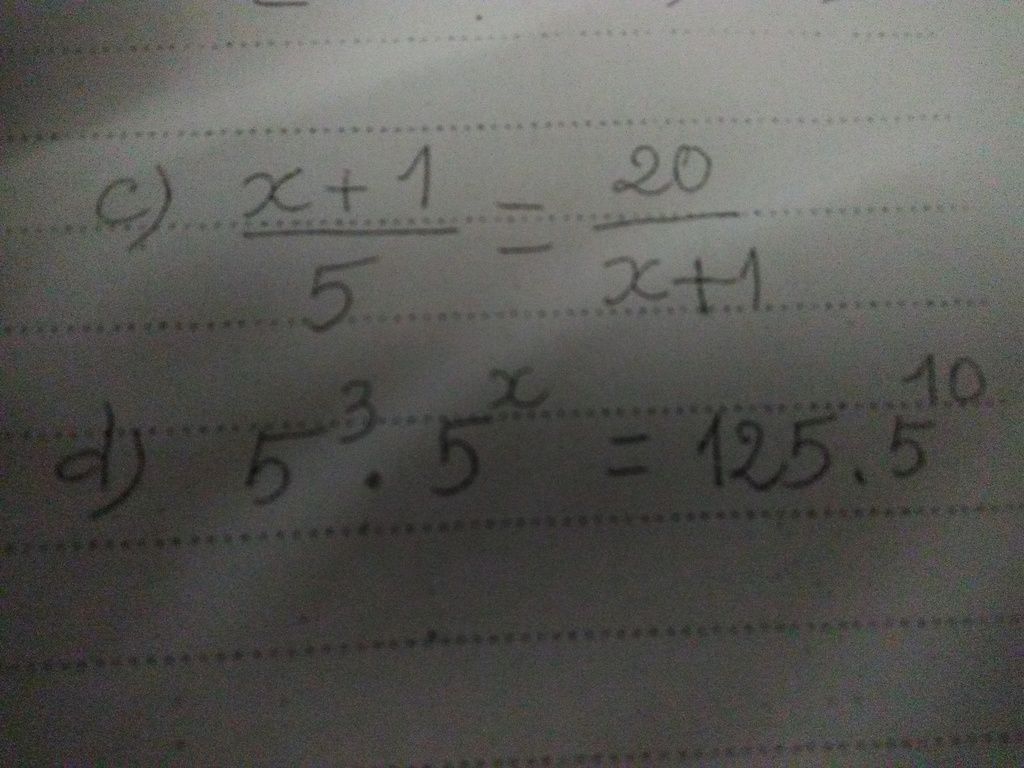 c) \frac{x+1}{5} = \frac{20}{x+1}
d) 5^3 . 5^x = 125 . 5^{10}